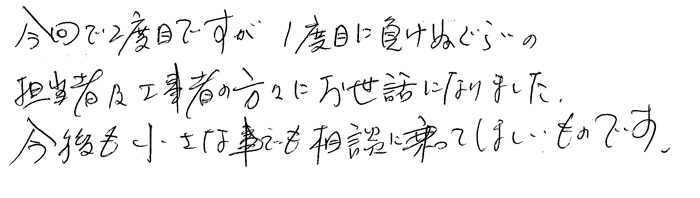 今回で2度目ですが1度目に負けぬぐらいの
担当者及工事者の方々にお世話になりました、
今後も小さな事でも相談に乗ってほしいものです、